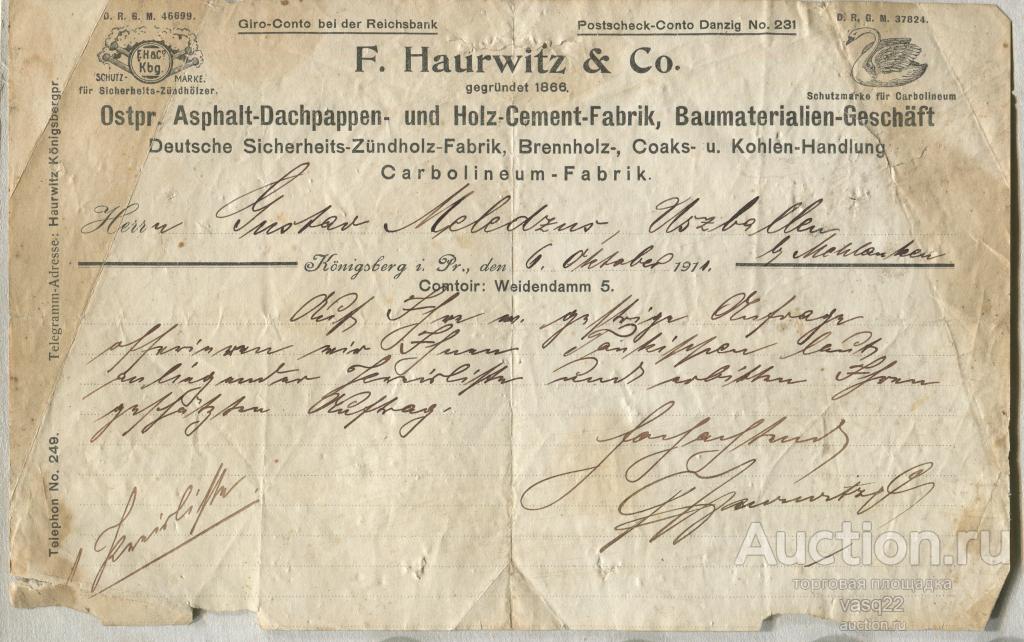 D. R. G. M. 46699.
Giro-Conto bei der Reichsbank
Postscheck-Conto Danzig No. 231
D. R. G. M. 37824.
F. H & Co
Kbg.
SCHUTZ- MARKE.
für Sicherheits-Zündhölzer.
F. Haurwitz & Co.
gegründet 1866.
Schutzmarke für Carbolineum
Ostpr. Asphalt-Dachpappen- und Holz-Cement-Fabrik, Baumaterialien-Geschäft
Deutsche Sicherheits-Zündholz-Fabrik, Brennholz-, Coaks- u. Kohlen-Handlung
Carbolineum-Fabrik.
Telegramm-Adresse: Haurwitz Königsbergpr.
Telephon No. 249.
Herrn Gustav Meledzus, Uszballen
by Mehlauken
Königsberg i. Pr., den 6. Oktober 1911.
Comtoir: Weidendamm 5.
Auf Ihre w. gestrige Anfrage
offerieren wir Ihnen laut
anliegender Preisliste und erbitten Ihren
geschätzten Auftrag.
Hochachtend
F Haurwitz & Co
1 Preisliste.
Auction.ru
торговая площадка
vasq22
auction.ru